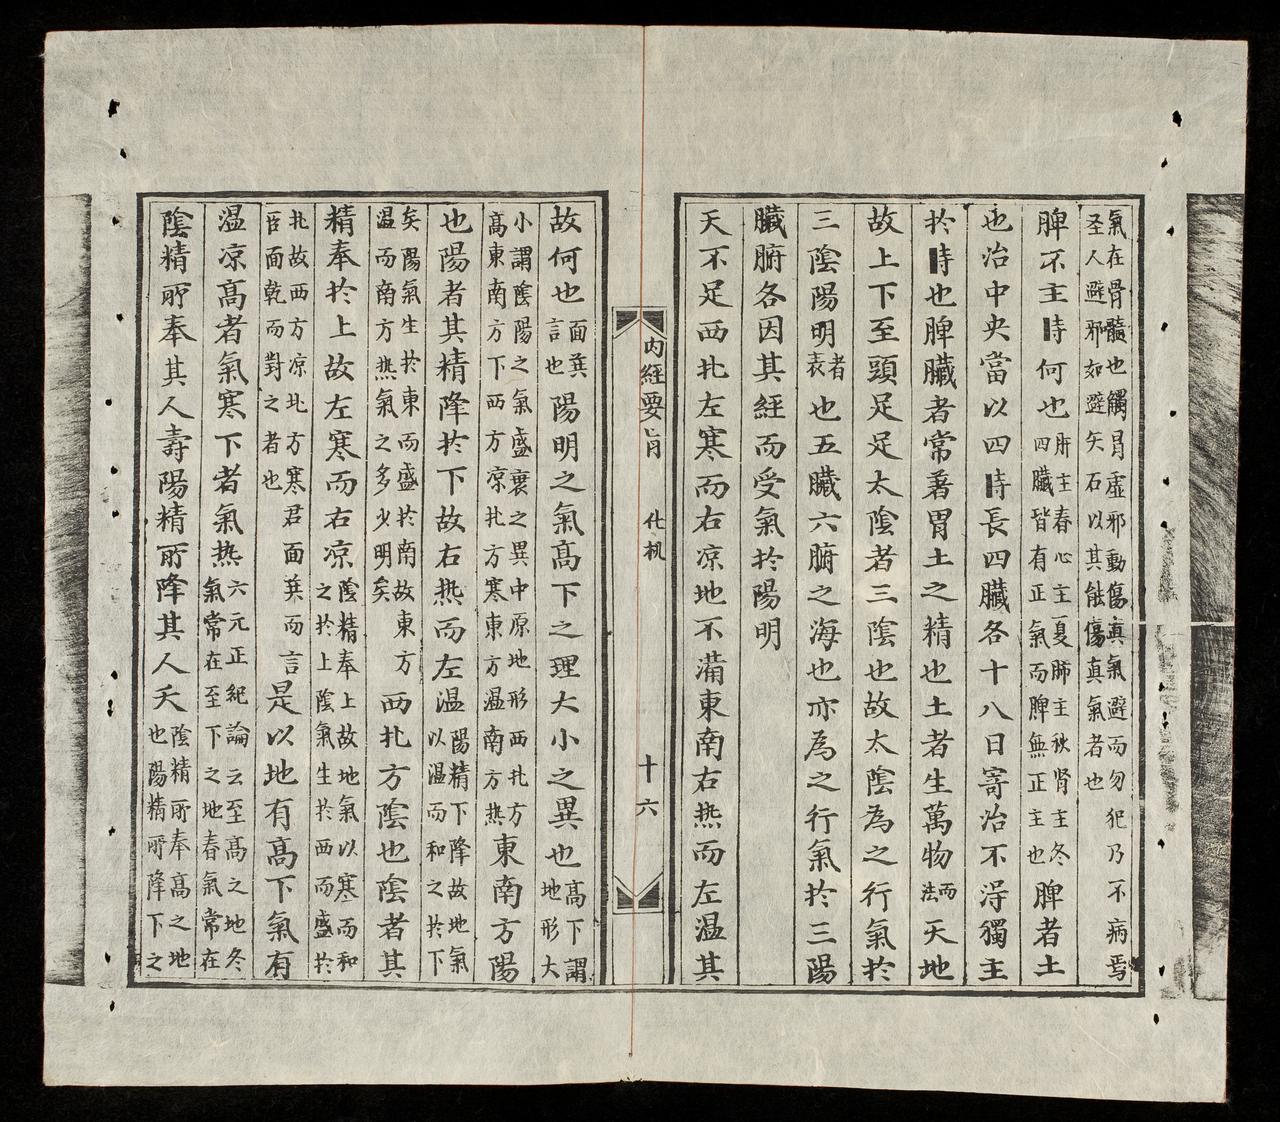 氣在骨髓也觸冒虛邪動傷真氣避而勿犯乃不病焉
圣人避邪如避矢石以其能傷真氣者也
脾不主時何也肝主春心主夏肺主秋肾主冬四臟皆有正氣而脾無正主也脾者土
也治中央當以四時長四臟各十八日寄治不淂獨主
扵時也脾臟者常著胃土之精也土者生萬物而法天地
故上下至頭足足太陰者三陰也故太陰為之行氣扵
三陰陽明者表也五臟六腑之海也亦為之行氣扵三陽
臟腑各因其經而受氣扵陽明
天不足西北左寒而右凉地不滿東南右热而左温其
内經要旨 化机 十六
故何也面巽言也陽明之氣高下之理大小之異也高下謂地形大
小謂陰陽之氣盛衰之異中原地形西北方高東南方下西方凉北方寒東方温南方热東南方陽
也陽者其精降扵下故右热而左温陽精下降故地氣以温而和之扵下
矣陽氣生扵東而盛扵南故東方温而南方热氣之多少明矣西北方陰也陰者其
精奉扵上故左寒而右凉陰精奉上故地氣以寒而和之扵上陰氣生扵西而盛扵
北故西方凉北方寒君面巽而言臣面乾而對之者也是以地有高下氣有
温凉高者氣寒下者氣热六元正紀論云至高之地冬氣常在至下之地春氣常在
陰精所奉其人壽陽精所降其人夭陰精所奉高之地也陽精所降下之